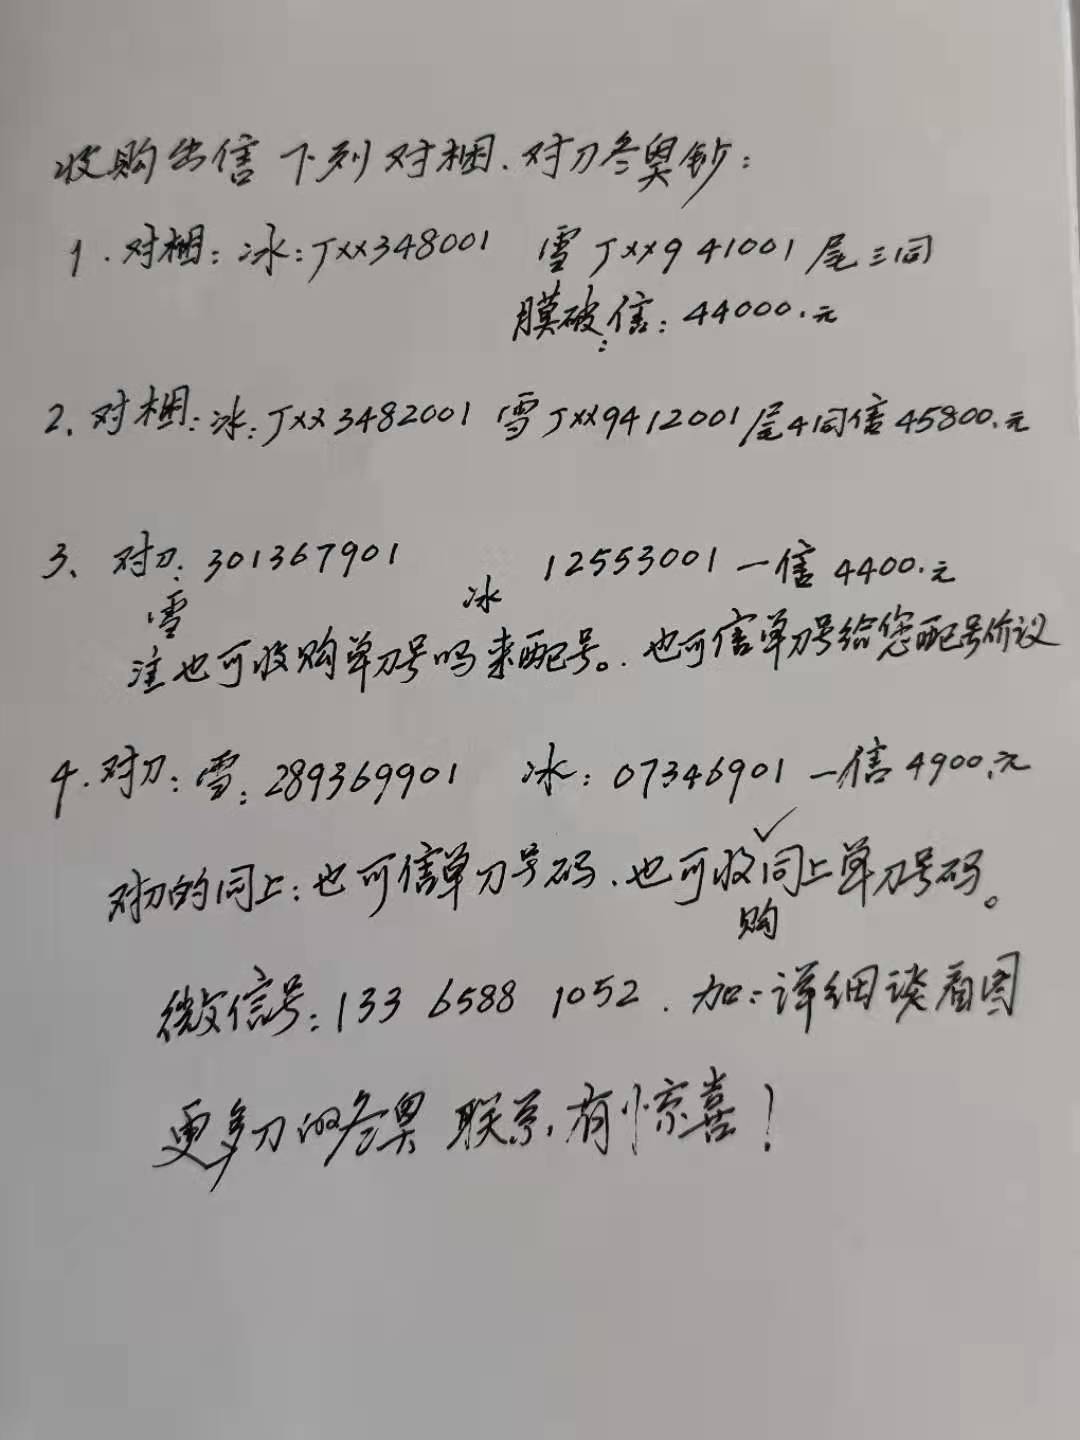 收购出信下列对捆.对刀冬奥钞:
1.对捆:冰:Jxx348001 雪Jxx941001尾三同
膜破:信:44000.元
2.对捆:冰:Jxx3482001 雪Jxx9412001尾4同信45800.元
3、对刀:301367901 12553001一信4400.元
雪 冰
注也可收购单刀号吗来配号。.也可信单刀号给您配号价议
4.对刀:雪:289369901 冰:07346901一信4900.元
对刀的同上:也可信单刀号码.也可收同上单刀号码。
购
微信号:133 6588 1052.加:详细谈看图
更多刀的冬奥联系,有惊喜!